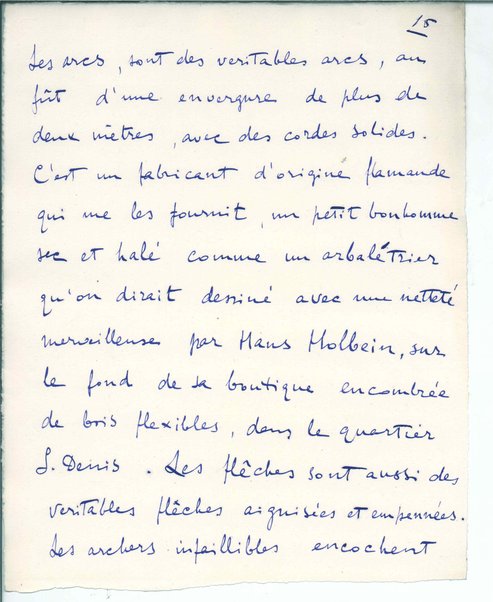 15
Les arcs, sont des veritables arcs, au
fût d'une envergure de plus de
deux mètres, avec des cordes solides.
C'est un fabricant d'origine flamande
qui me les fournit, un petit bonhomme
sec et halé comme un arbalétrier
qu'on dirait dessiné avec une netteté
merveilleuse par Hans Holbein, sur
le fond de sa boutique encombrée
de bois flexibles, dans le quartier
S. Denis. Les flêches sont aussi des
veritables flêches aiguisées et empennées.
Les archers infaillibles encochent